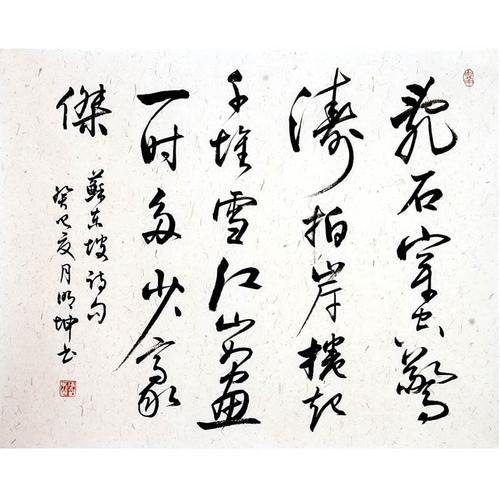 亂石穿空驚
濤拍岸捲起
千堆雪江山如畫
一时多少豪
傑
蘇東坡詩句
癸巳夏月明坤书